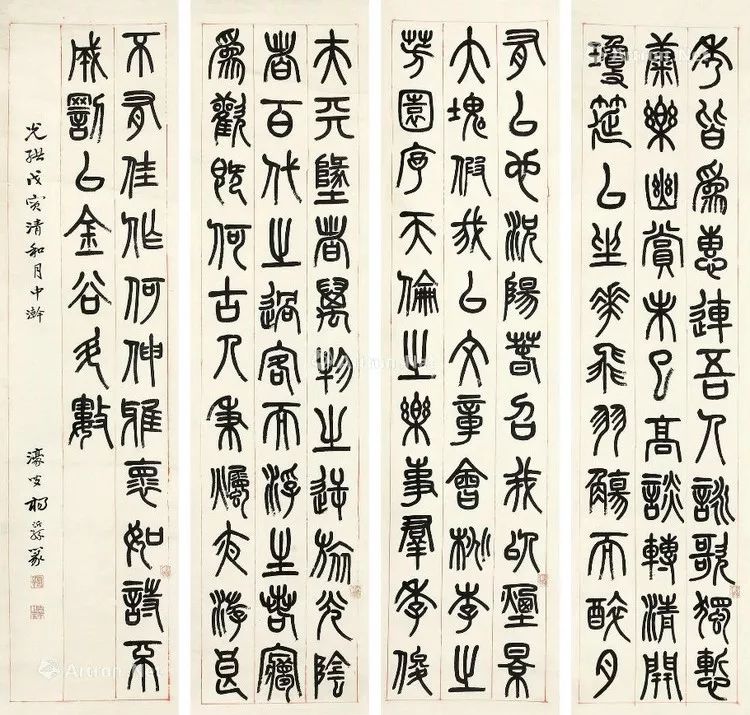 夫天墬者萬物之逆旅光陰
者百代之過客而浮生若寱
爲歡幾何古人秉燭夜游良
有以也況陽春召我以煙景
大塊假我以文章會桃李之
芳園序天倫之樂事羣季俊
秀皆爲惠連吾人詠歌獨慙
康樂幽賞未已高談轉清開
瓊筵以坐華飛羽觴而醉月
不有佳作何伸雅懷如詩不
成罰以金谷酒數
光緒戊寅清和月中澣
濠叟楊沂孫篆
Artron.Net